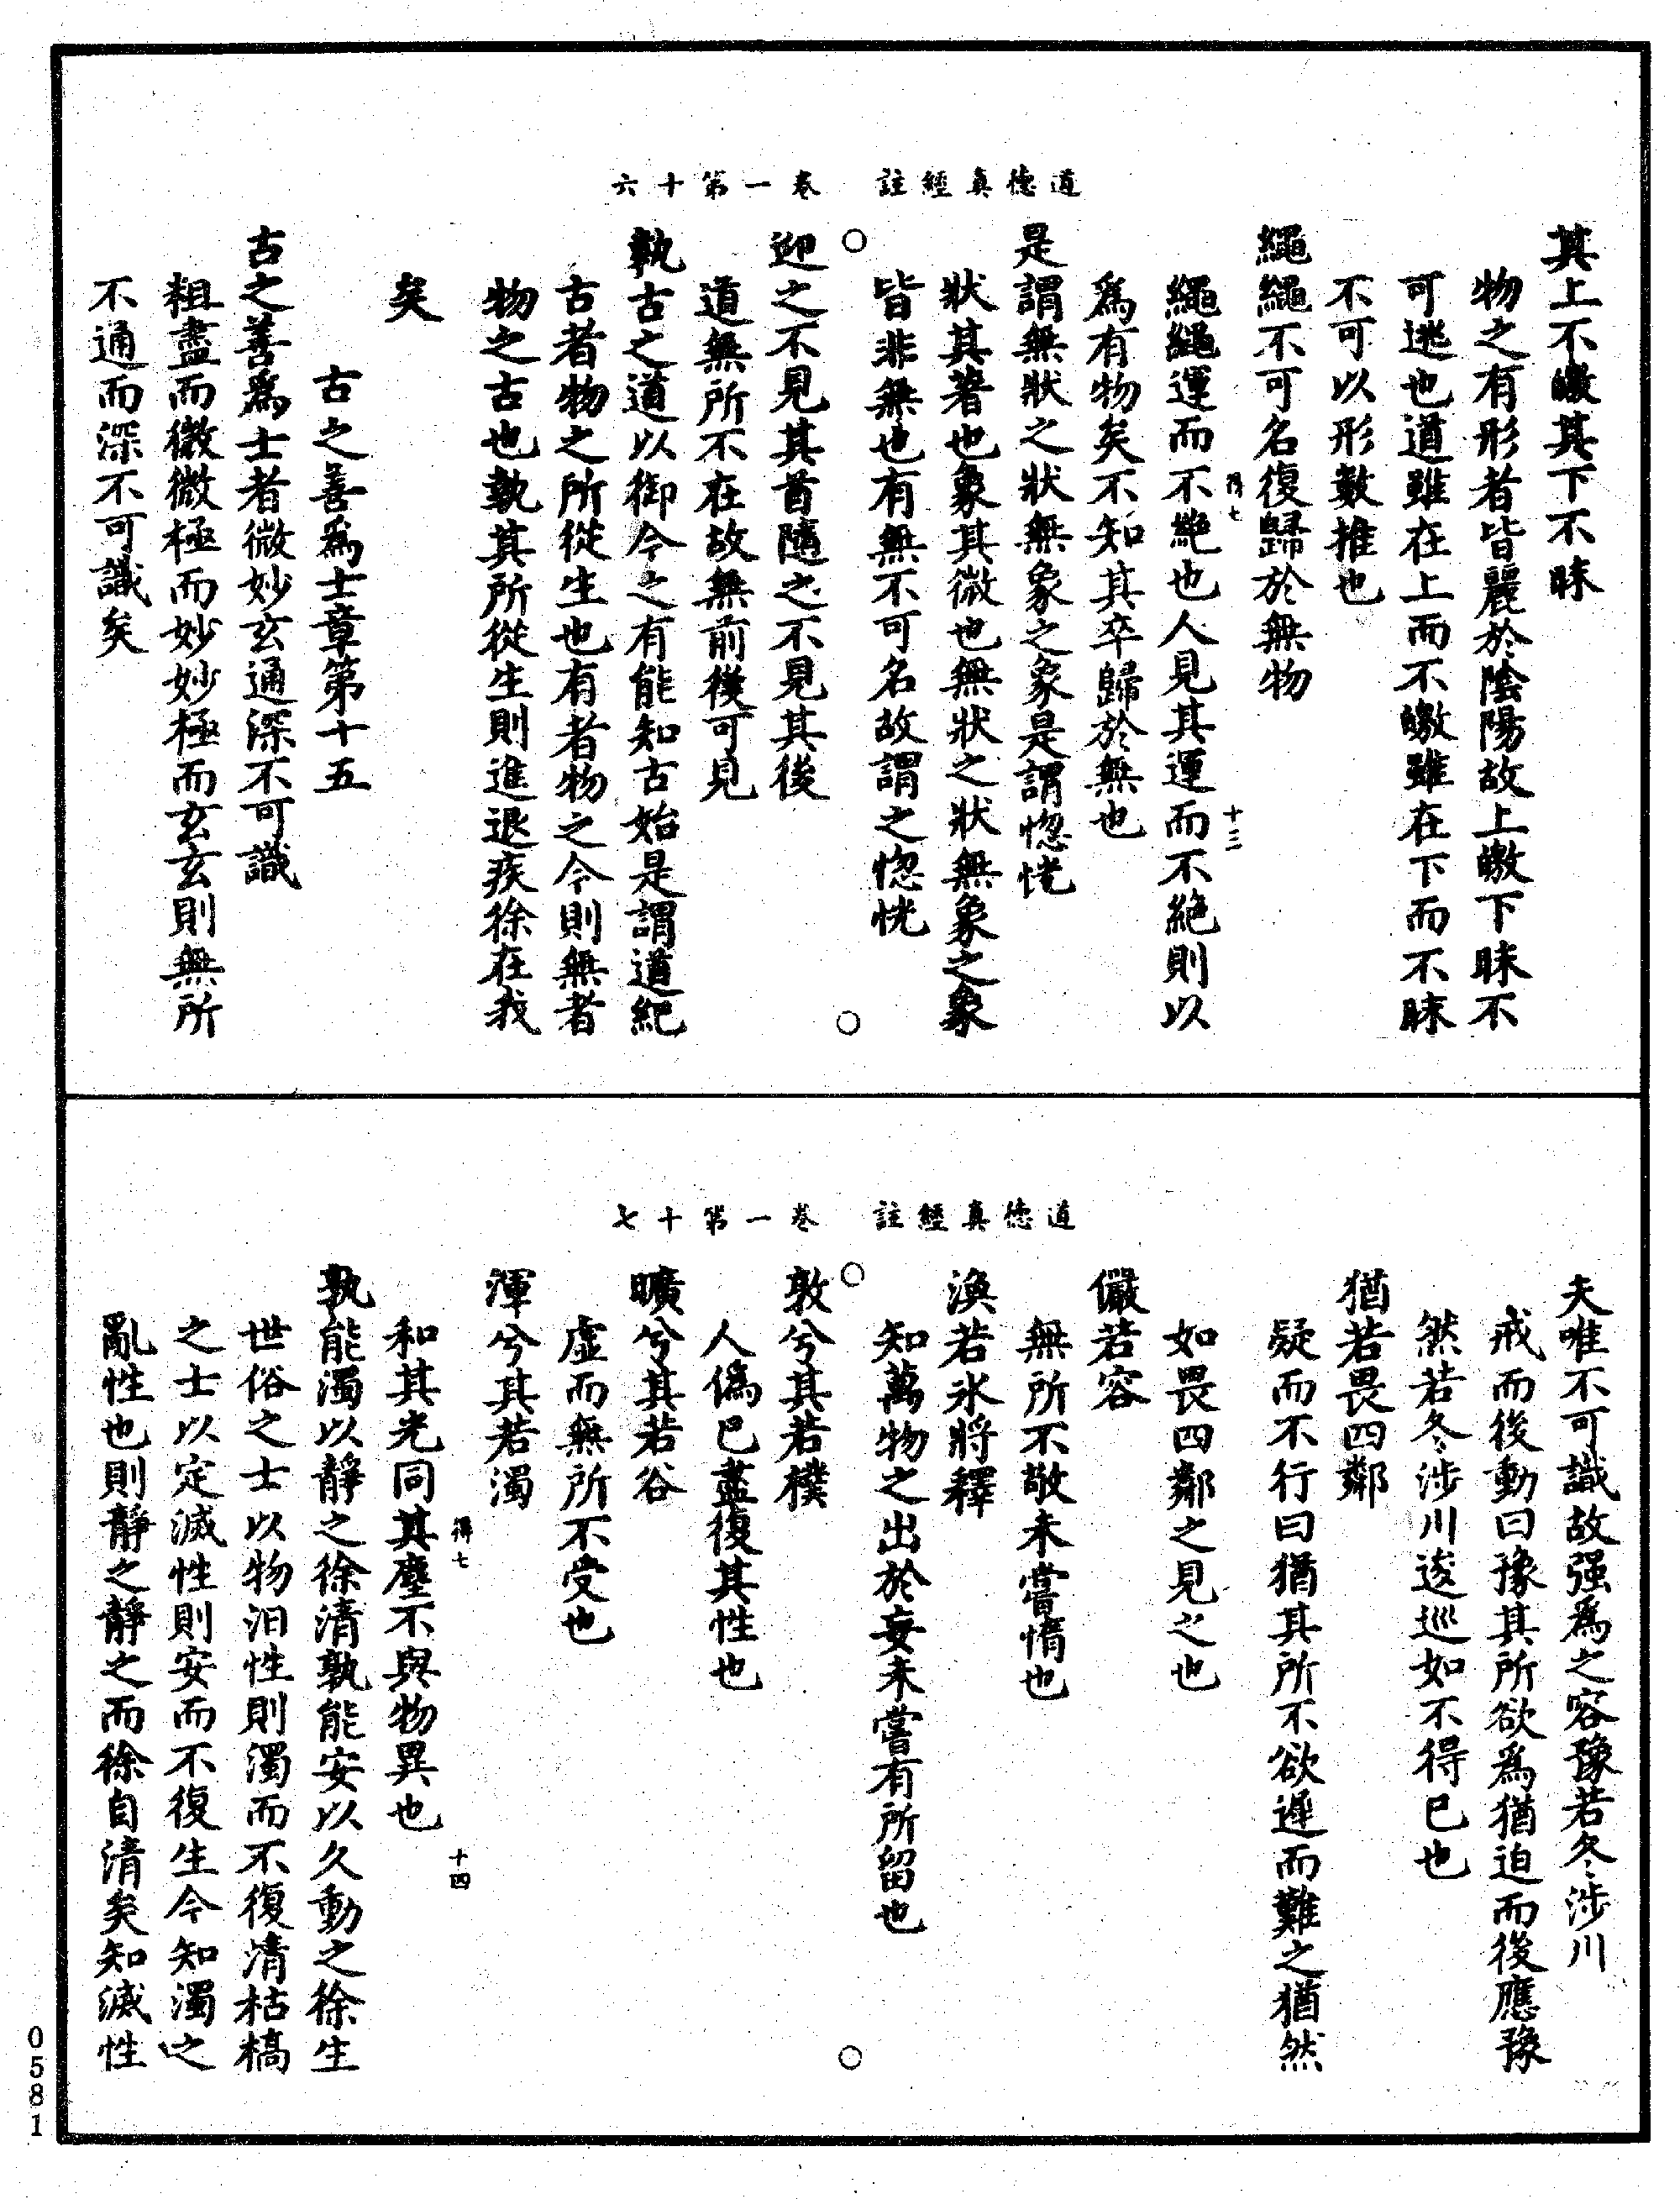 道德真經註　卷一第十六
其上不皦其下不昧
物之有形者皆麗於陰陽故上皦下昧不
可逃也道雖在上而不皦雖在下而不昧
不可以形數推也
繩繩不可名復歸於無物
得七　十三
繩繩運而不絶也人見其運而不絶則以
爲有物矣不知其卒歸於無也
是謂無狀之狀無象之象是謂惚恍
狀其著也象其微也無狀之狀無象之象
皆非無也有無不可名故謂之惚恍
迎之不見其首隨之不見其後
道無所不在故無前後可見
執古之道以御今之有能知古始是謂道紀
古者物之所從生也有者物之今則無者
物之古也執其所從生則進退疾徐在我
矣
古之善爲士章第十五
古之善爲士者微妙玄通深不可識
粗盡而微微極而妙妙極而玄玄則無所
不通而深不可識矣
道德真經註　卷一第十七
夫唯不可識故强爲之容豫若冬涉川
戒而後動曰豫其所欲爲猶迫而後應豫
然若冬涉川逡巡如不得已也
猶若畏四鄰
疑而不行曰猶其所不欲遲而難之猶然
如畏四鄰之見之也
儼若容
無所不敬未嘗惰也
渙若氷將釋
知萬物之出於妄未嘗有所留也
敦兮其若樸
人僞已盡復其性也
曠兮其若谷
虛而無所不受也
渾兮其若濁
得七　十四
和其光同其塵不與物異也
孰能濁以靜之徐清孰能安以久動之徐生
世俗之士以物汨性則濁而不復清枯槁
之士以定滅性則安而不復生今知濁之
亂性也則靜之靜之而徐自清矣知滅性
0581